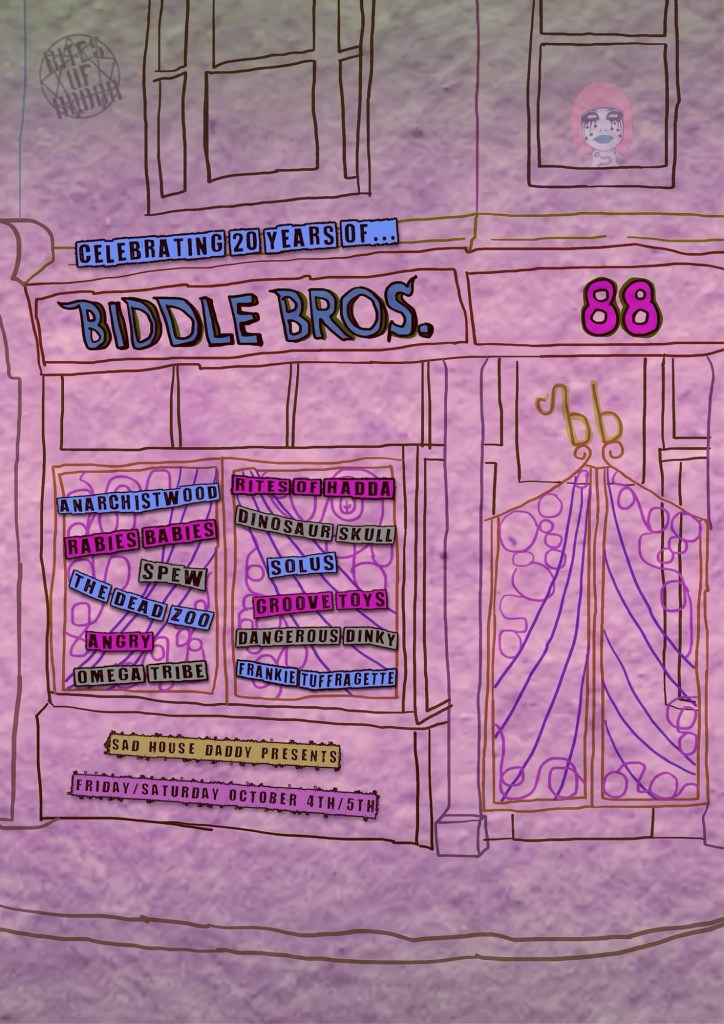 RITES
OF
HADDA
CELEBRATING 20 YEARS OF...
BIDDLE BROS.
88
bb
ANARCHISTWOOD
RABIES BABIES
SPEW
THE DEAD ZOO
ANGRY
OMEGA TRIBE
RITES OF HADDA
DINOSAUR SKULL
SOLUS
GROOVE TOYS
DANGEROUS DINKY
FRANKIE TUFFRAGETTE
SAD HOUSE DADDY PRESENTS
FRIDAY/SATURDAY OCTOBER 4TH/5TH